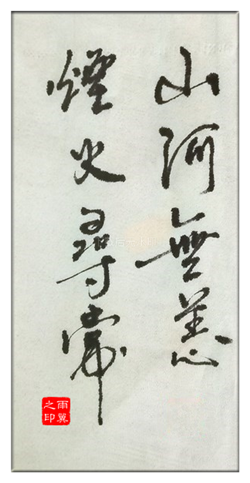 山河無恙
煙火尋常
雨翼之印